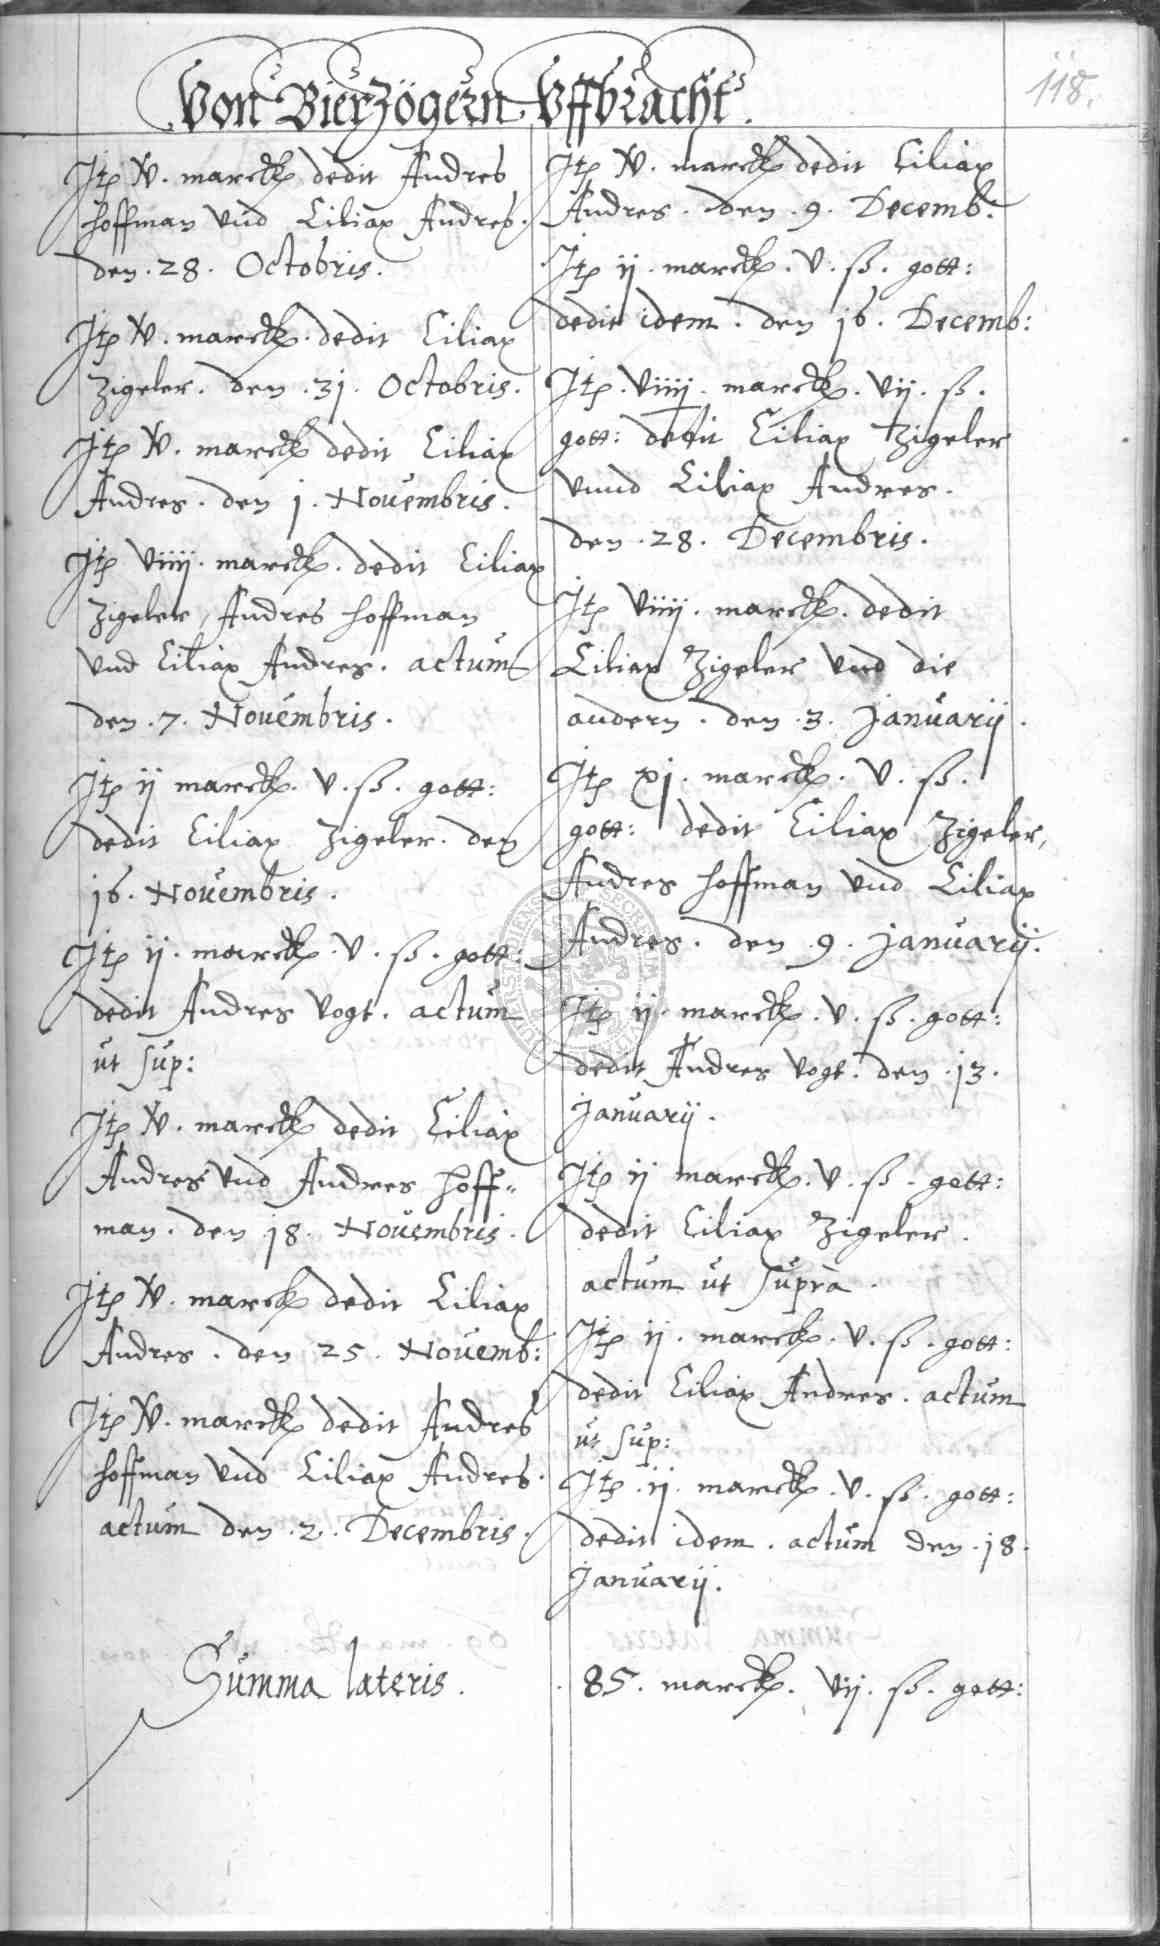 Von Bierzögern Uffbracht.
118.
Itp IV. marck dedit Andres
Hoffman und Ciliax Andres.
den. 28. Octobris.
Itp IV. marck. dedit Ciliax
Zigeler. den. 31. Octobris.
Itp IV. marck dedit Ciliax
Andres. den 1. Novembris.
Itp viiij. marck. dedit Ciliax
Zigeler, Andres Hoffman
und Ciliax Andres. actum
den. 7. Novembris.
Itp ij marck. v. ß. gott:
dedit Ciliax Zigeler. den
16. Novembris.
Itp ij. marck. v. ß. gott:
dedit Andres Vogt. actum
ut sup:
Itp IV. marck dedit Ciliax
Andres und Andres Hoff-
man. den 18. Novembris.
Itp IV. marck dedit Ciliax
Andres. den 25. Novemb:
Itp IV. marck dedit Andres
Hoffman und Ciliax Andres.
actum den. 2. Decembris.
Itp IV. marck dedit Ciliax
Andres. den. 9. Decemb:
Itp ij. marck. v. ß. gott:
dedit idem. den 16. Decemb:
Itp. viiij. marck. vij. ß.
gott: dedit Ciliax Zigeler
unnd Ciliax Andres.
den. 28. Decembris.
Itp viiij. marck. dedit
Ciliax Zigeler und die
andern. den. 3. Januarij.
Itp xj. marck. v. ß.
gott: dedit Ciliax Zigeler,
Andres Hoffman und Ciliax
Andres. den 9. Januarij.
Itp ij. marck. v. ß. gott:
dedit Andres Vogt. den. 13.
Januarij.
Itp ij marck. v. ß. gott:
dedit Ciliax Zigeler.
actum ut supra.
Itp ij. marck. v. ß. gott:
dedit Ciliax Andres. actum
ut sup:
Itp. ij. marck. v. ß. gott:
dedit idem. actum den. 18.
Januarij.
Summa lateris. 85. marck. vij. ß. gott: